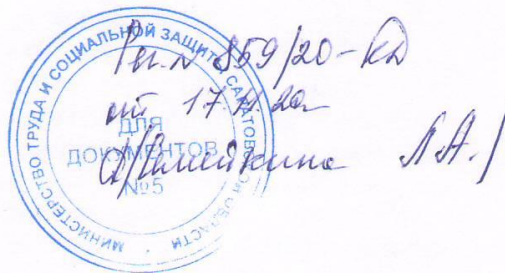 МИНИСТЕРСТВО ТРУДА И СОЦИАЛЬНОЙ ЗАЩИТЫ САРАТОВСКОЙ ОБЛАСТИ
ДЛЯ
ДОКУМЕНТОВ
№5
859/20-КД
от 17
Л.А./